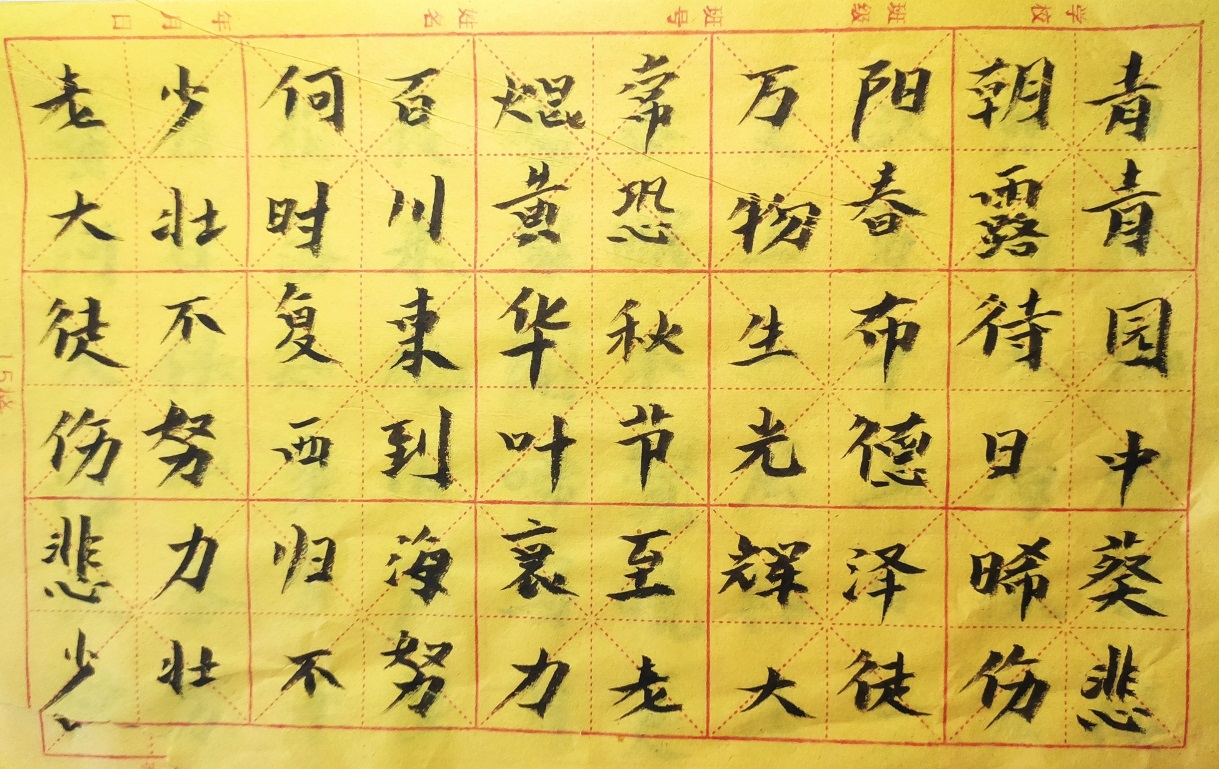 学校 班级 班号 姓名 年 月 日
青青园中葵悲
朝露待日晞伤
阳春布德泽徒
万物生光辉大
常恐秋节至老
焜黄华叶衰力
百川東到海努
何时复西归不
少壮不努力壮
老大徒伤悲少
15格